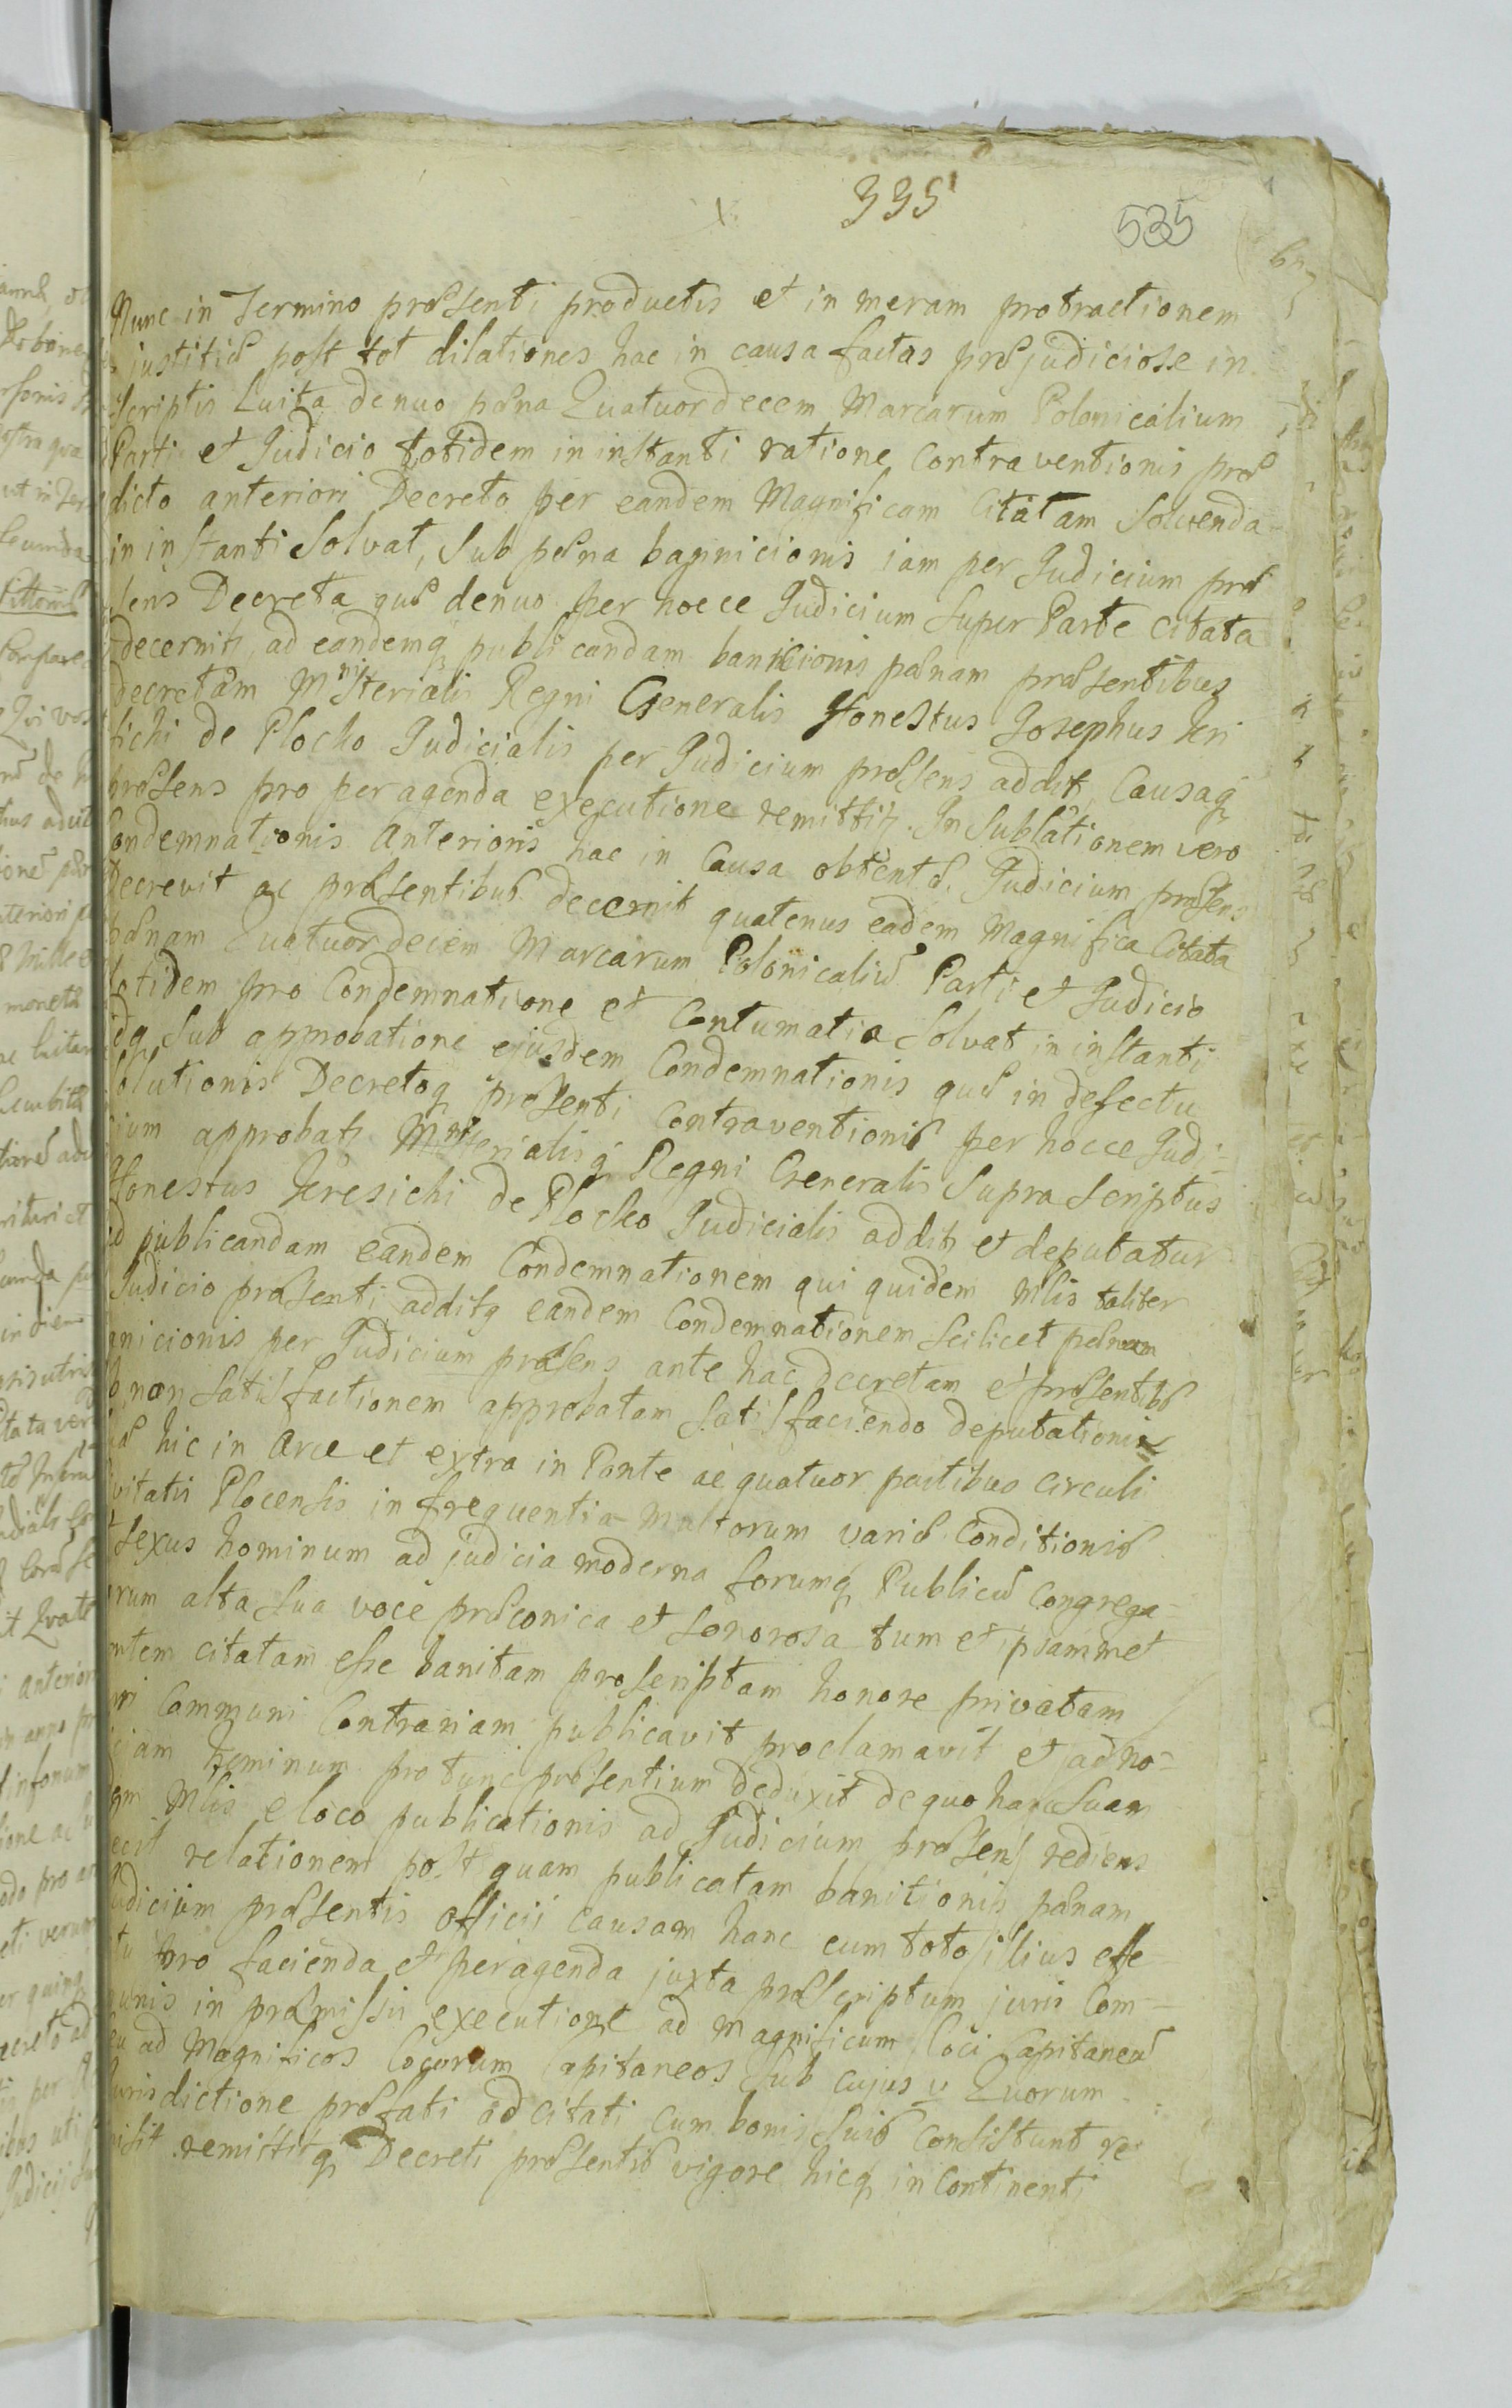 335
535
Nunc in Termino præsenti productis et in meram protractionem
justitiæ post tot dilationes hac in causa factas præjudiciose in
scriptis Luita denuo pæna Quatuordecem Marcarum Polonicalium
Parti et Judicio totidem in instanti ratione Contraventionis præ
dicto anteriori Decreto per eandem Magnificam Citatam Solvenda
in instanti Solvat, Sub pæna bannicionis iam per Judicium præ
sens Decreta quæ denuo per hocce Judicium Super Parte Citata
decernitr, ad eandemq publicandam banicionis pænam præsentibus
decretam Mnisterialis Regni Generalis Honestus Josephus Kre
sichi de Plocko Judicialis per Judicium præsens additr, Causaq
præsens pro peragenda executione remittitr. In Sublationem vero
Condemnationis Anterioris hac in Causa obtentæ. Judicium præsens
Decrevit ac præsentibus decernit quatenus eadem Magnifica Citata
pænam Quatuordecem Marcarum Polonicaliū Parti et Judicio
totidem pro Condemnatione et Contumatia Solvat in instanti
idq Sub approbatione ejusdem Condemnationis quæ in defectu
Solutionis Decretoq præsenti Contraventionis per hocce Judi-
cium approbatr Mnisterialisq Regni Generalis Supra Scriptus
Honestus Kresichi de Plocko Judicialis additr et deputatur
ad publicandam eandem Condemnationem qui quidem Mlis taliter
Judicio præsenti additq eandem Condemnationem Scilicet pænam
anicionis per Judicium præsens ante hac decretam et præsentibs
b non Satisfactionem approbatam Satisfaciendo deputationis
hic in Arce et extra in Ponte ac quatuor partibus Circuli
vitatis Plocensis in frequentia Multorum variæ Conditionis
sexus hominum ad judicia moderna forumq Publicū Congrega-
rum alta Sua voce præconica et Sonorosa tum et ipsammet
ntem citatam esse banitam proscriptam honore privatam
ri Communi Contrariam publicavit proclamavit et ad no-
iam hominum pro tunc præsentium deduxit de quo hanc Suam
dem Mlis e loco publicationis ad Judicium præsens rediens
ecit relationem post quam publicatam banitionis pænam
udicium præsentis Officii Causam hanc cum toto illius effe
tu pro facienda et peragenda juxta præscriptum juris Com-
unis in præmissis executione ad Magnificum Loci Capitaneū
eu ad Magnificos Locorum Capitaneos Sub cujus v Quorum
Jurisdictione præfati ad citati Cum bonis Suis Consistunt re
misit remittitq Decreti præsentis vigore hicq in Continenti